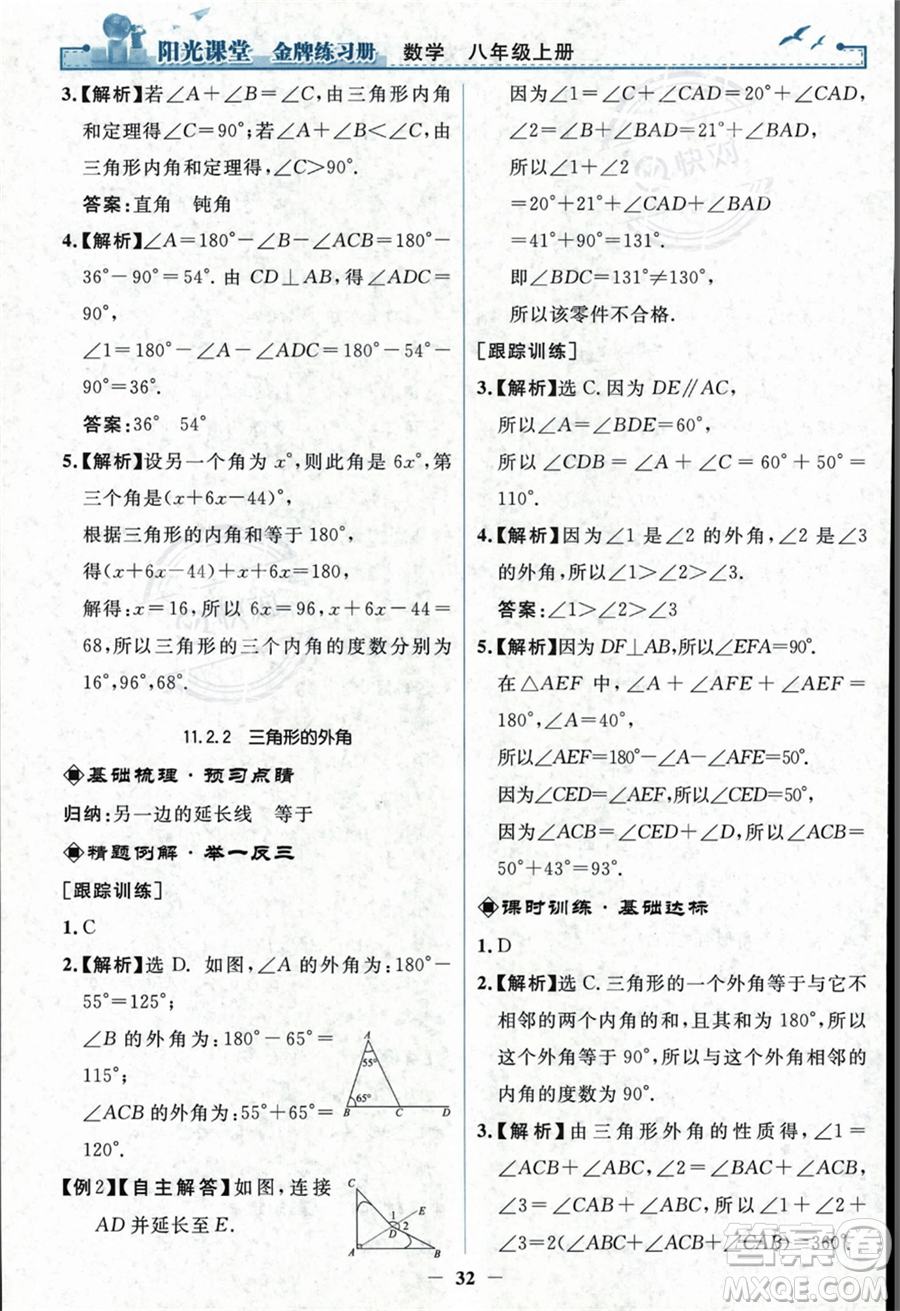 阳光课堂 金牌练习册 数学 八年级上册
3.【解析】若∠A+∠B=∠C,由三角形内角
和定理得∠C=90°;若∠A+∠B<∠C,由
三角形内角和定理得,∠C>90°.
答案:直角 钝角
4.【解析】∠A=180°-∠B-∠ACB=180°-
36°-90°=54°. 由 CD⊥AB,得∠ADC=
90°,
∠1=180°-∠A-∠ADC=180°-54°-
90°=36°.
答案:36° 54°
5.【解析】设另一个角为 x°,则此角是 6x°,第
三个角是(x+6x-44)°,
根据三角形的内角和等于 180°,
得(x+6x-44)+x+6x=180,
解得:x=16,所以 6x=96,x+6x-44=
68,所以三角形的三个内角的度数分别为
16°,96°,68°.
11.2.2 三角形的外角
基础梳理·预习点睛
归纳:另一边的延长线 等于
精题例解·举一反三
[跟踪训练]
1. C
2.【解析】选 D. 如图,∠A 的外角为:180°-
55°=125°;
∠B 的外角为:180°-65°=
115°;
∠ACB 的外角为:55°+65°=
120°.
A
55°
65°
B C D
【例2】【自主解答】如图,连接
AD 并延长至 E.
C
E
1
2
D
A B
因为∠1=∠C+∠CAD=20°+∠CAD,
∠2=∠B+∠BAD=21°+∠BAD,
所以∠1+∠2
=20°+21°+∠CAD+∠BAD
=41°+90°=131°.
即∠BDC=131°≠130°.
所以该零件不合格.
[跟踪训练]
3.【解析】选 C. 因为 DE∥AC,
所以∠A=∠BDE=60°,
所以∠CDB=∠A+∠C=60°+50°=
110°.
4.【解析】因为∠1 是∠2 的外角,∠2 是∠3
的外角,所以∠1>∠2>∠3.
答案:∠1>∠2>∠3
5.【解析】因为 DF⊥AB,所以∠EFA=90°.
在△AEF 中,∠A+∠EFA+∠AEF=
180°,∠A=40°,
所以∠AEF=180°-∠EFA-∠A=50°.
因为∠CED=∠AEF,所以∠CED=50°.
因为∠ACB=∠CED+∠D,所以∠ACB=
50°+43°=93°.
课时训练·基础达标
1. D
2.【解析】选 C. 三角形的一个外角等于与它不
相邻的两个内角的和,其和为 180°,所以
这个外角等于 90°,所以与这个外角相邻的
内角的度数为 90°.
3.【解析】由三角形外角的性质得,∠1=
∠ACB+∠ABC,∠2=∠BAC+∠ACB,
∠3=∠CAB+∠ABC,所以∠1+∠2+
∠3=2(∠ACB+∠ABC+∠CAB)=360°.
32
答案圈
MXQE.COM